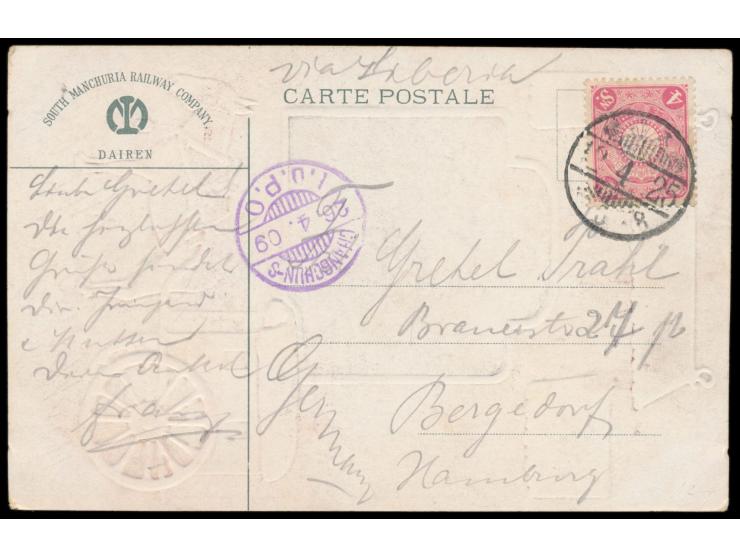 via Siberia
SOUTH MANCHURIA RAILWAY COMPANY.
DAIREN
CARTE POSTALE
4 Sn
4 25
8
I.J.P.O
26 4. 09
CHANGCHUN-S
Liebe Gretel
die herzlichsten
Grüße sendet
Dir,
Deine
Onkel
Franz
Gretel Prahl
Brauerstr 27 p
Bergedorf
Hamburg
Germany